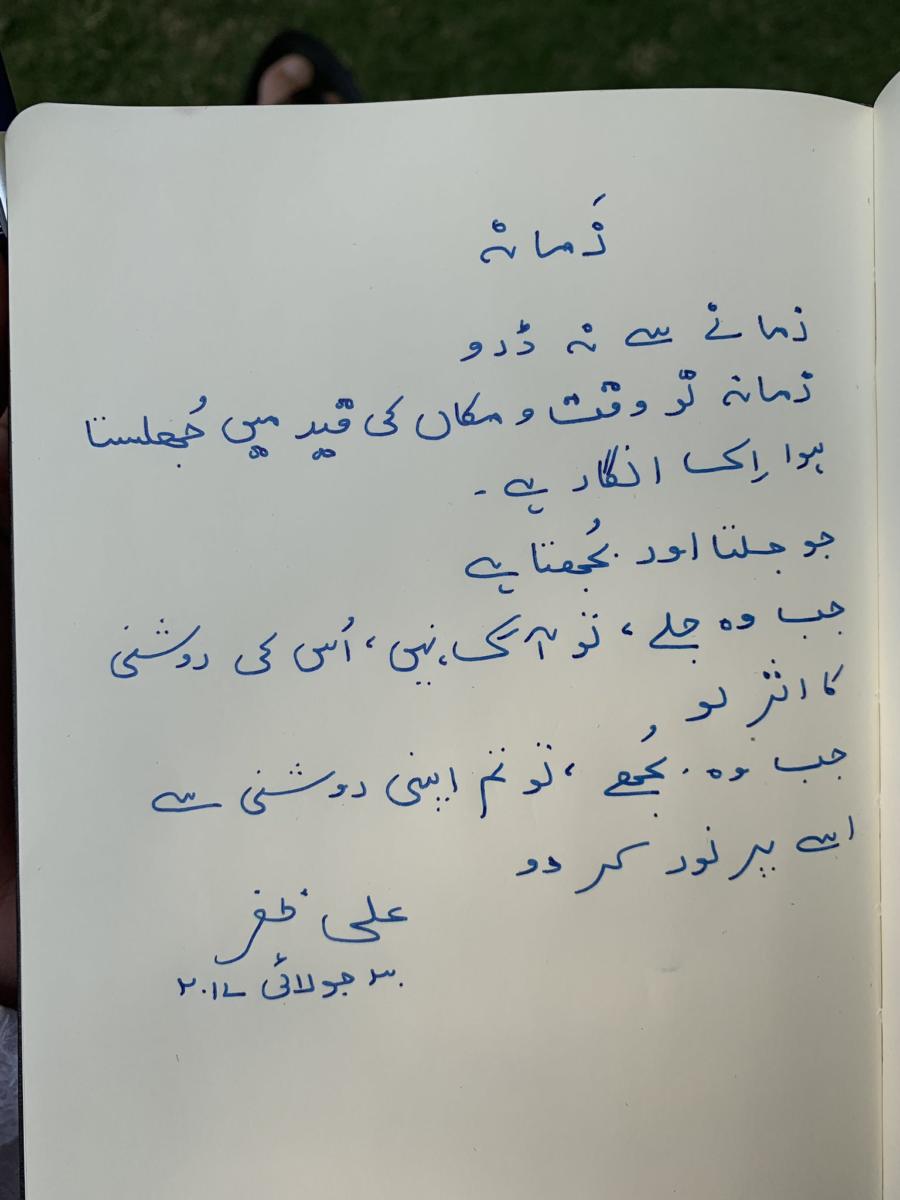 زَمانہ
زمانے سے نہ ڈرو
زمانہ تو وقت و مکاں کی قید میں جُھلستا
ہوا اِک انگار ہے ۔
جو جلتا اور بُجھتا ہے
جب وہ جلے ، تو آنکھیں نہیں ، اُس کی روشنی
کا اثر لو
جب وہ بُجھے ، تو تم اپنی روشنی سے
اسے پر نور کر دو
علی ظفر
۳۰ جولائی ۲۰۱۷